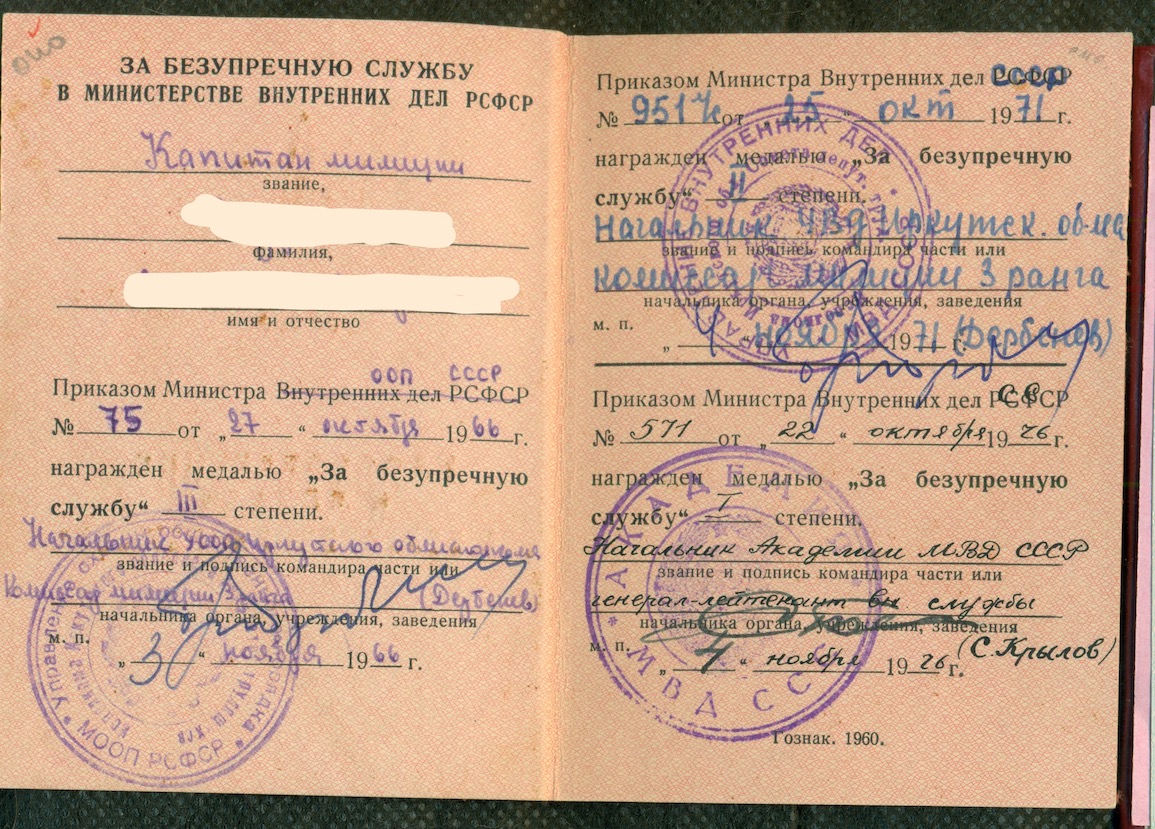 ЗА БЕЗУПРЕЧНУЮ СЛУЖБУ
В МИНИСТЕРСТВЕ ВНУТРЕННИХ ДЕЛ РСФСР
Капитан милиции
звание,
фамилия,
имя и отчество
ООП СССР
Приказом Министра Внутренних дел РСФСР
№ 75 от „27“ октября 1966 г.
награжден медалью „За безупречную
службу“ III степени.
Начальник УООП Иркутского облисполкома
звание и подпись командира части или
Комиссар милиции 3 ранга (Дербенев)
начальника органа, учреждения, заведения
м. п.
„3“ ноября 1966 г.
МООП РСФСР
Приказом Министра Внутренних дел СССР
№ 951 от „25“ окт 1971 г.
награжден медалью „За безупречную
службу“ II степени.
Начальник УВД Иркутск. обл
звание и подпись командира части или
комиссар милиции 3 ранга
начальника органа, учреждения, заведения
м. п.
„4“ ноября 1971 г. (Дербенев)
Приказом Министра Внутренних дел СССР
№ 571 от „22“ октября 1976 г.
награжден медалью „За безупречную
службу“ I степени.
Начальник Академии МВД СССР
звание и подпись командира части или
генерал-лейтенант вн службы
начальника органа, учреждения, заведения
м. п.
„4“ ноября 1976 г. (С. Крылов)
АКАДЕМИЯ
МВД СССР
Гознак. 1960.